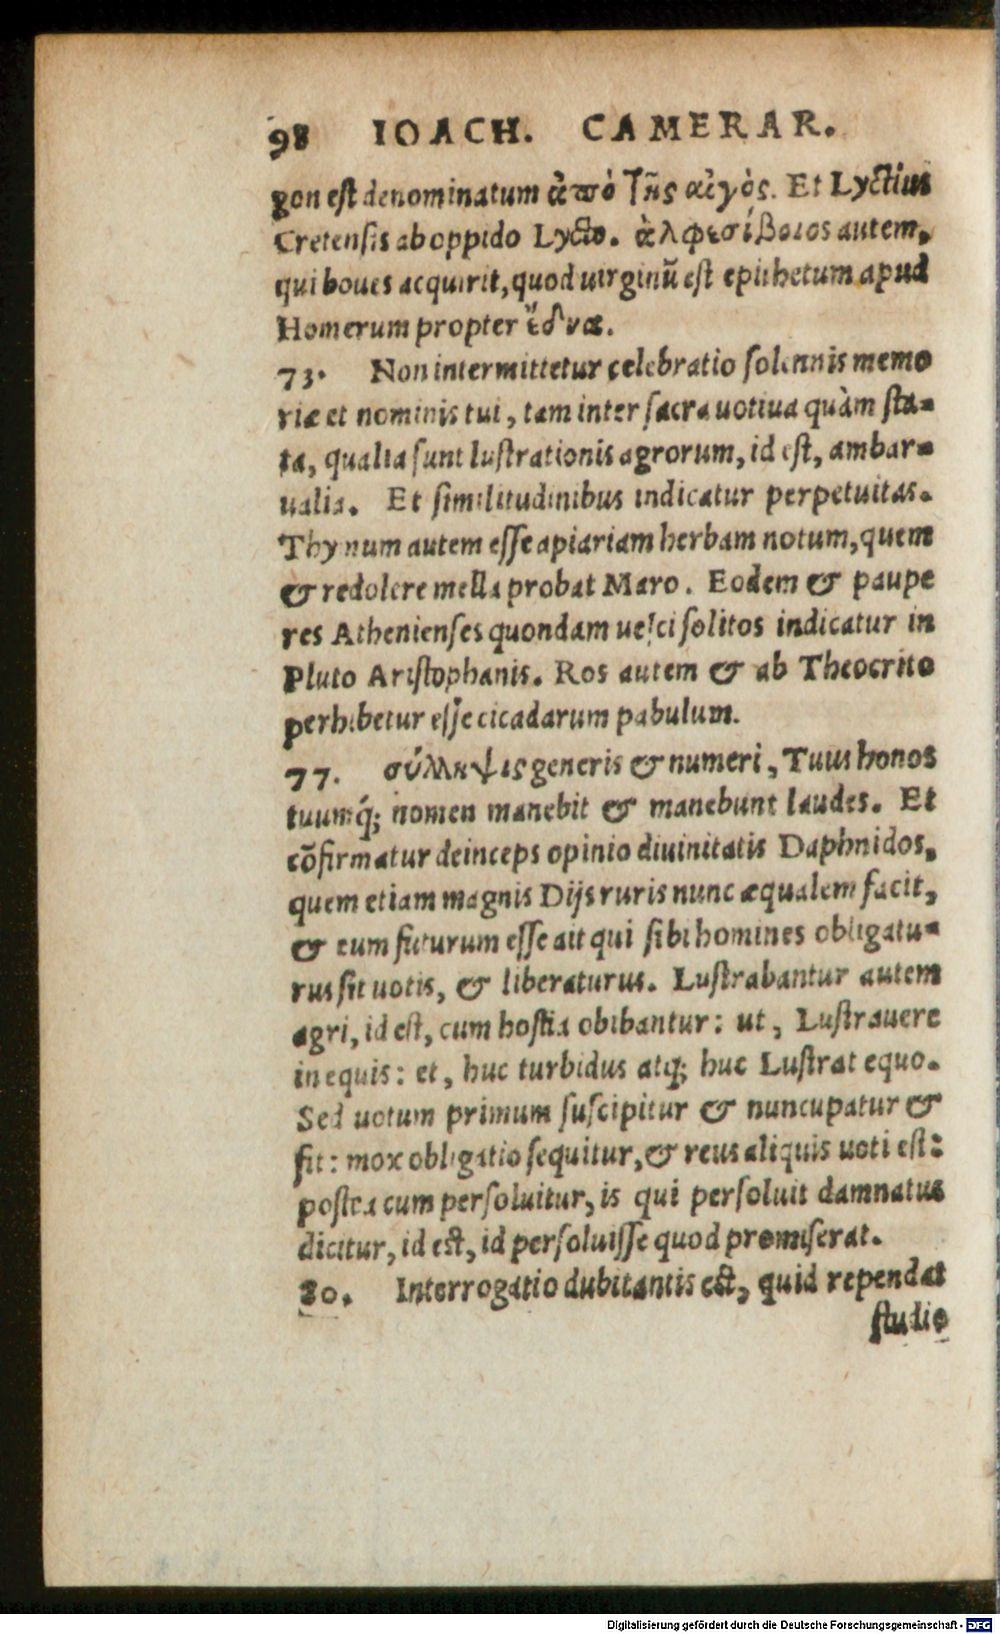 98 IOACH. CAMERAR.
gon est denominatum ἀπὸ τῆς αἰγὸς. Et Lyctius
Cretensis ab oppido Lycto. ἀλφεσίβοιος autem,
qui boues acquirit, quod uirginũ est epithetum apud
Homerum propter ἕδνα.
73. Non intermittetur celebratio solennis memo
riæ et nominis tui, tam inter sacra uotiua quàm sta-
ta, qualia sunt lustrationis agrorum, id est, ambar-
ualia. Et similitudinibus indicatur perpetuitas.
Thynum autem esse apiariam herbam notum, quem
& redolere mella probat Maro. Eodem & paupe
res Athenienses quondam uesci solitos indicatur in
Pluto Aristophanis. Ros autem & ab Theocrito
perhibetur esse cicadarum pabulum.
77. σύλληψις generis & numeri, Tuus honos
tuumq́; nomen manebit & manebunt laudes. Et
cõfirmatur deinceps opinio diuinitatis Daphnidos,
quem etiam magnis Dijs ruris nunc æqualem facit,
& eum futurum esse ait qui sibi homines obligatu-
rus sit uotis, & liberaturus. Lustrabantur autem
agri, id est, cum hostia obibantur: ut, Lustrauere
in equis: et, huc turbidus atq; huc Lustrat equo.
Sed uotum primum suscipitur & nuncupatur &
fit: mox obligatio sequitur, & reus aliquis uoti est:
postea cum persoluitur, is qui persoluit damnatus
dicitur, id est, id persoluisse quod promiserat.
80. Interrogatio dubitantis est, quid rependat
studio
Digitalisierung gefördert durch die Deutsche Forschungsgemeinschaft - DFG